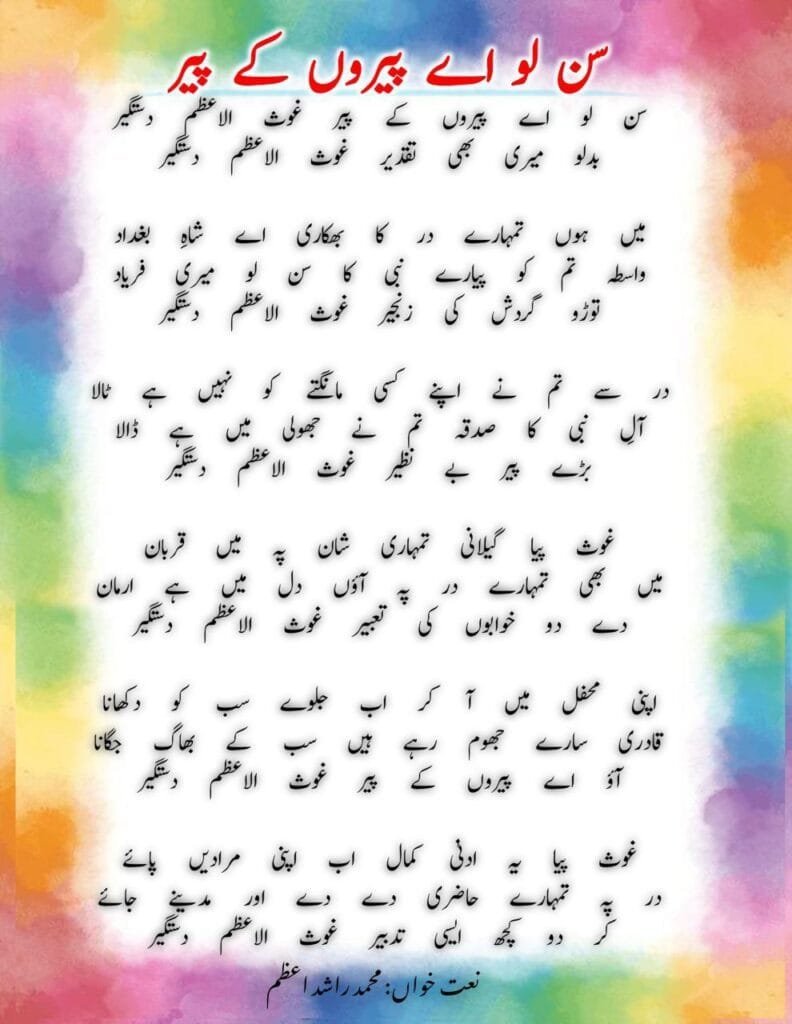 سن لو اے پیروں کے پیر
سن لو اے پیروں کے پیر غوث الاعظم دستگیر
بدلو میری بھی تقدیر غوث الاعظم دستگیر
میں ہوں تمہارے در کا بھکاری اے شاہِ بغداد
واسطہ تم کو پیارے نبی کا سن لو میری فریاد
توڑو گردش کی زنجیر غوث الاعظم دستگیر
در سے تم نے اپنے کسی مانگتے کو نہیں ہے ٹالا
آلِ نبی کا صدقہ تم نے جھولی میں ہے ڈالا
بڑے پیر بے نظیر غوث الاعظم دستگیر
غوث پیا گیلانی تمہاری شان پہ میں قربان
میں بھی تمہارے در پہ آؤں دل میں ہے ارمان
دے دو خوابوں کی تعبیر غوث الاعظم دستگیر
اپنی محفل میں آ کر اب جلوے سب کو دکھانا
قادری سارے جھوم رہے ہیں سب کے بھاگ جگانا
آؤ اے پیروں کے پیر غوث الاعظم دستگیر
غوث پیا یہ ادنیٰ کمال اب اپنی مرادیں پائے
در پہ تمہارے حاضری دے دے اور مدینے جائے
کر دو کچھ ایسی تدبیر غوث الاعظم دستگیر
نعت خواں: محمد راشد اعظم